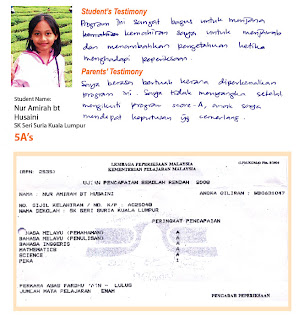 Student's Testimony
Program ini sangat bagus untuk menjana
kemahiran saya untuk menjawab
dan menambahkan pengetahuan ketika
menghadapi peperiksaan.
Parents' Testimony
Saya berasa bertuah kerana diperkenalkan
program ini. Saya tidak menyangka setelah
mengikuti program score-A, anak saya
mendapat keputusan yg cemerlang.
Student Name:
Nur Amirah bt
Husaini
SK Seri Suria Kuala Lumpur
5A's
LEMBAGA PEPERIKSAAN MALAYSIA
KEMENTERIAN PELAJARAN MALAYSIA
UJIAN PENCAPAIAN SEKOLAH RENDAH - 2008
NAMA : NUR AMIRAH BT HUSAINI
ANGKA GILIRAN :
NO. SIJIL KELAHIRAN / NO. K/P :
NAMA SEKOLAH : SK SERI SURIA KUALA LUMPUR
PERINGKAT PENCAPAIAN
BAHASA MELAYU (PEMAHAMAN) A
BAHASA MELAYU (PENULISAN) A
BAHASA INGGERIS A
MATHEMATICS A
SCIENCE A
PEKA 1
PERKARA ASAS FARDHU 'AIN - LULUS
JUMLAH MATA PELAJARAN ENAM
PENGARAH PEPERIKSAAN